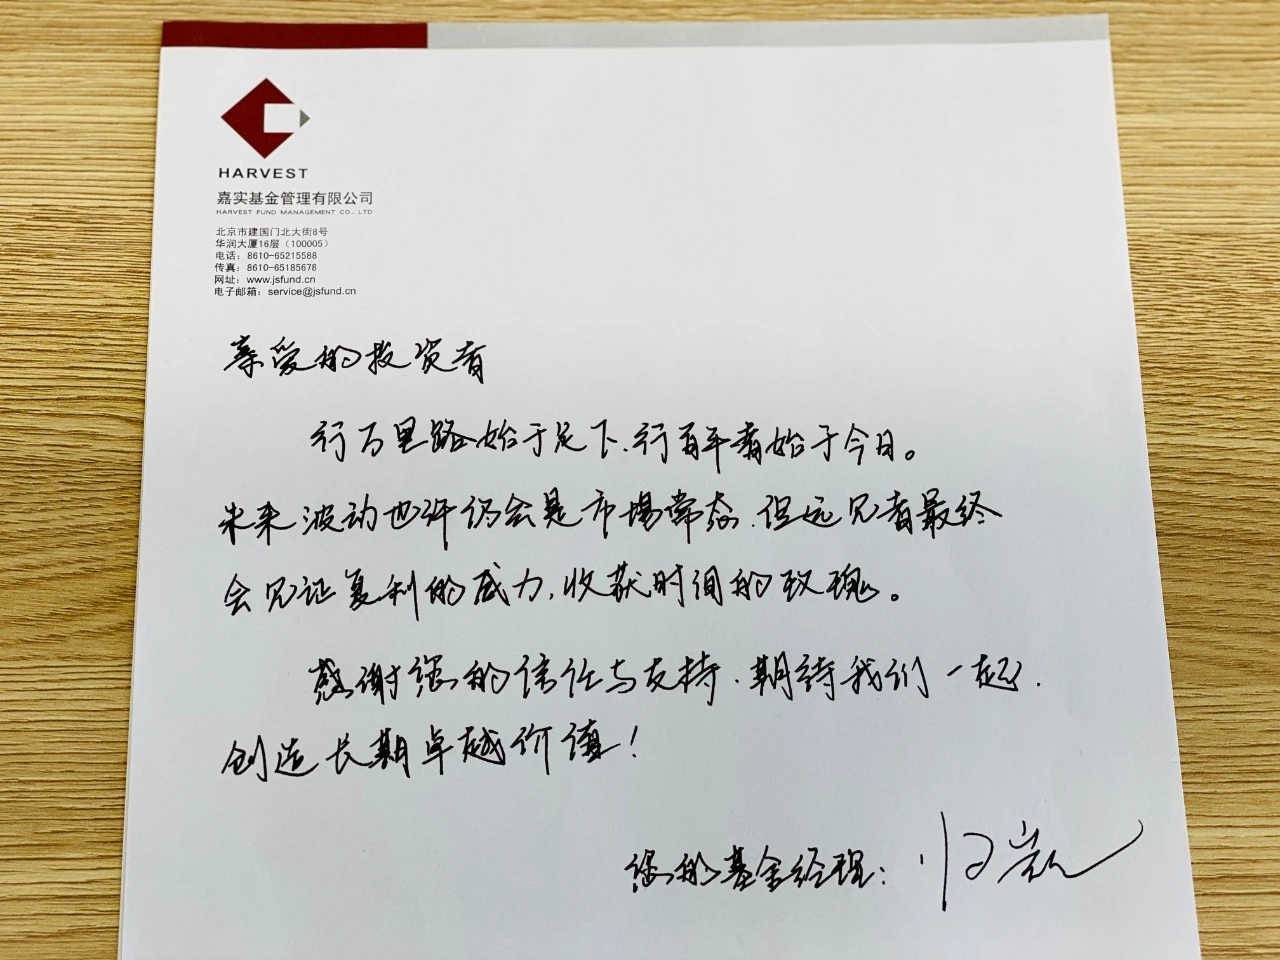 HARVEST
嘉实基金管理有限公司
HARVEST FUND MANAGEMENT CO., LTD
北京市建国门北大街8号
华润大厦16层（100005）
电话：8610-65215588
传真：8610-65185678
网址：www.jsfund.cn
电子邮箱：service@jsfund.cn
亲爱的投资者
行万里路始于足下、行百年者始于今日。
未来波动也许仍会是市场常态、但远见者最终
会见证复利的威力，收获时间的玫瑰。
感谢您的信任与支持、期待我们一起、
创造长期卓越价值！
您的基金经理：归凯